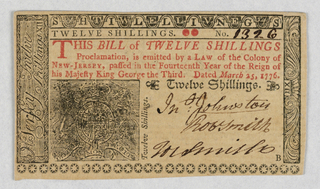 SHILLINGS
TWELVE SHILLINGS No. 1326
THIS BILL of TWELVE SHILLINGS
Proclamation, is emitted by a LAW of the Colony of
NEW-JERSEY, passed in the Fourteenth Year of the Reign of
his Majesty King George the Third. Dated March 25, 1776.
Twelve Shillings.
Twelve Shillings.
Jn Johnston
Rob Smith
Smith
B